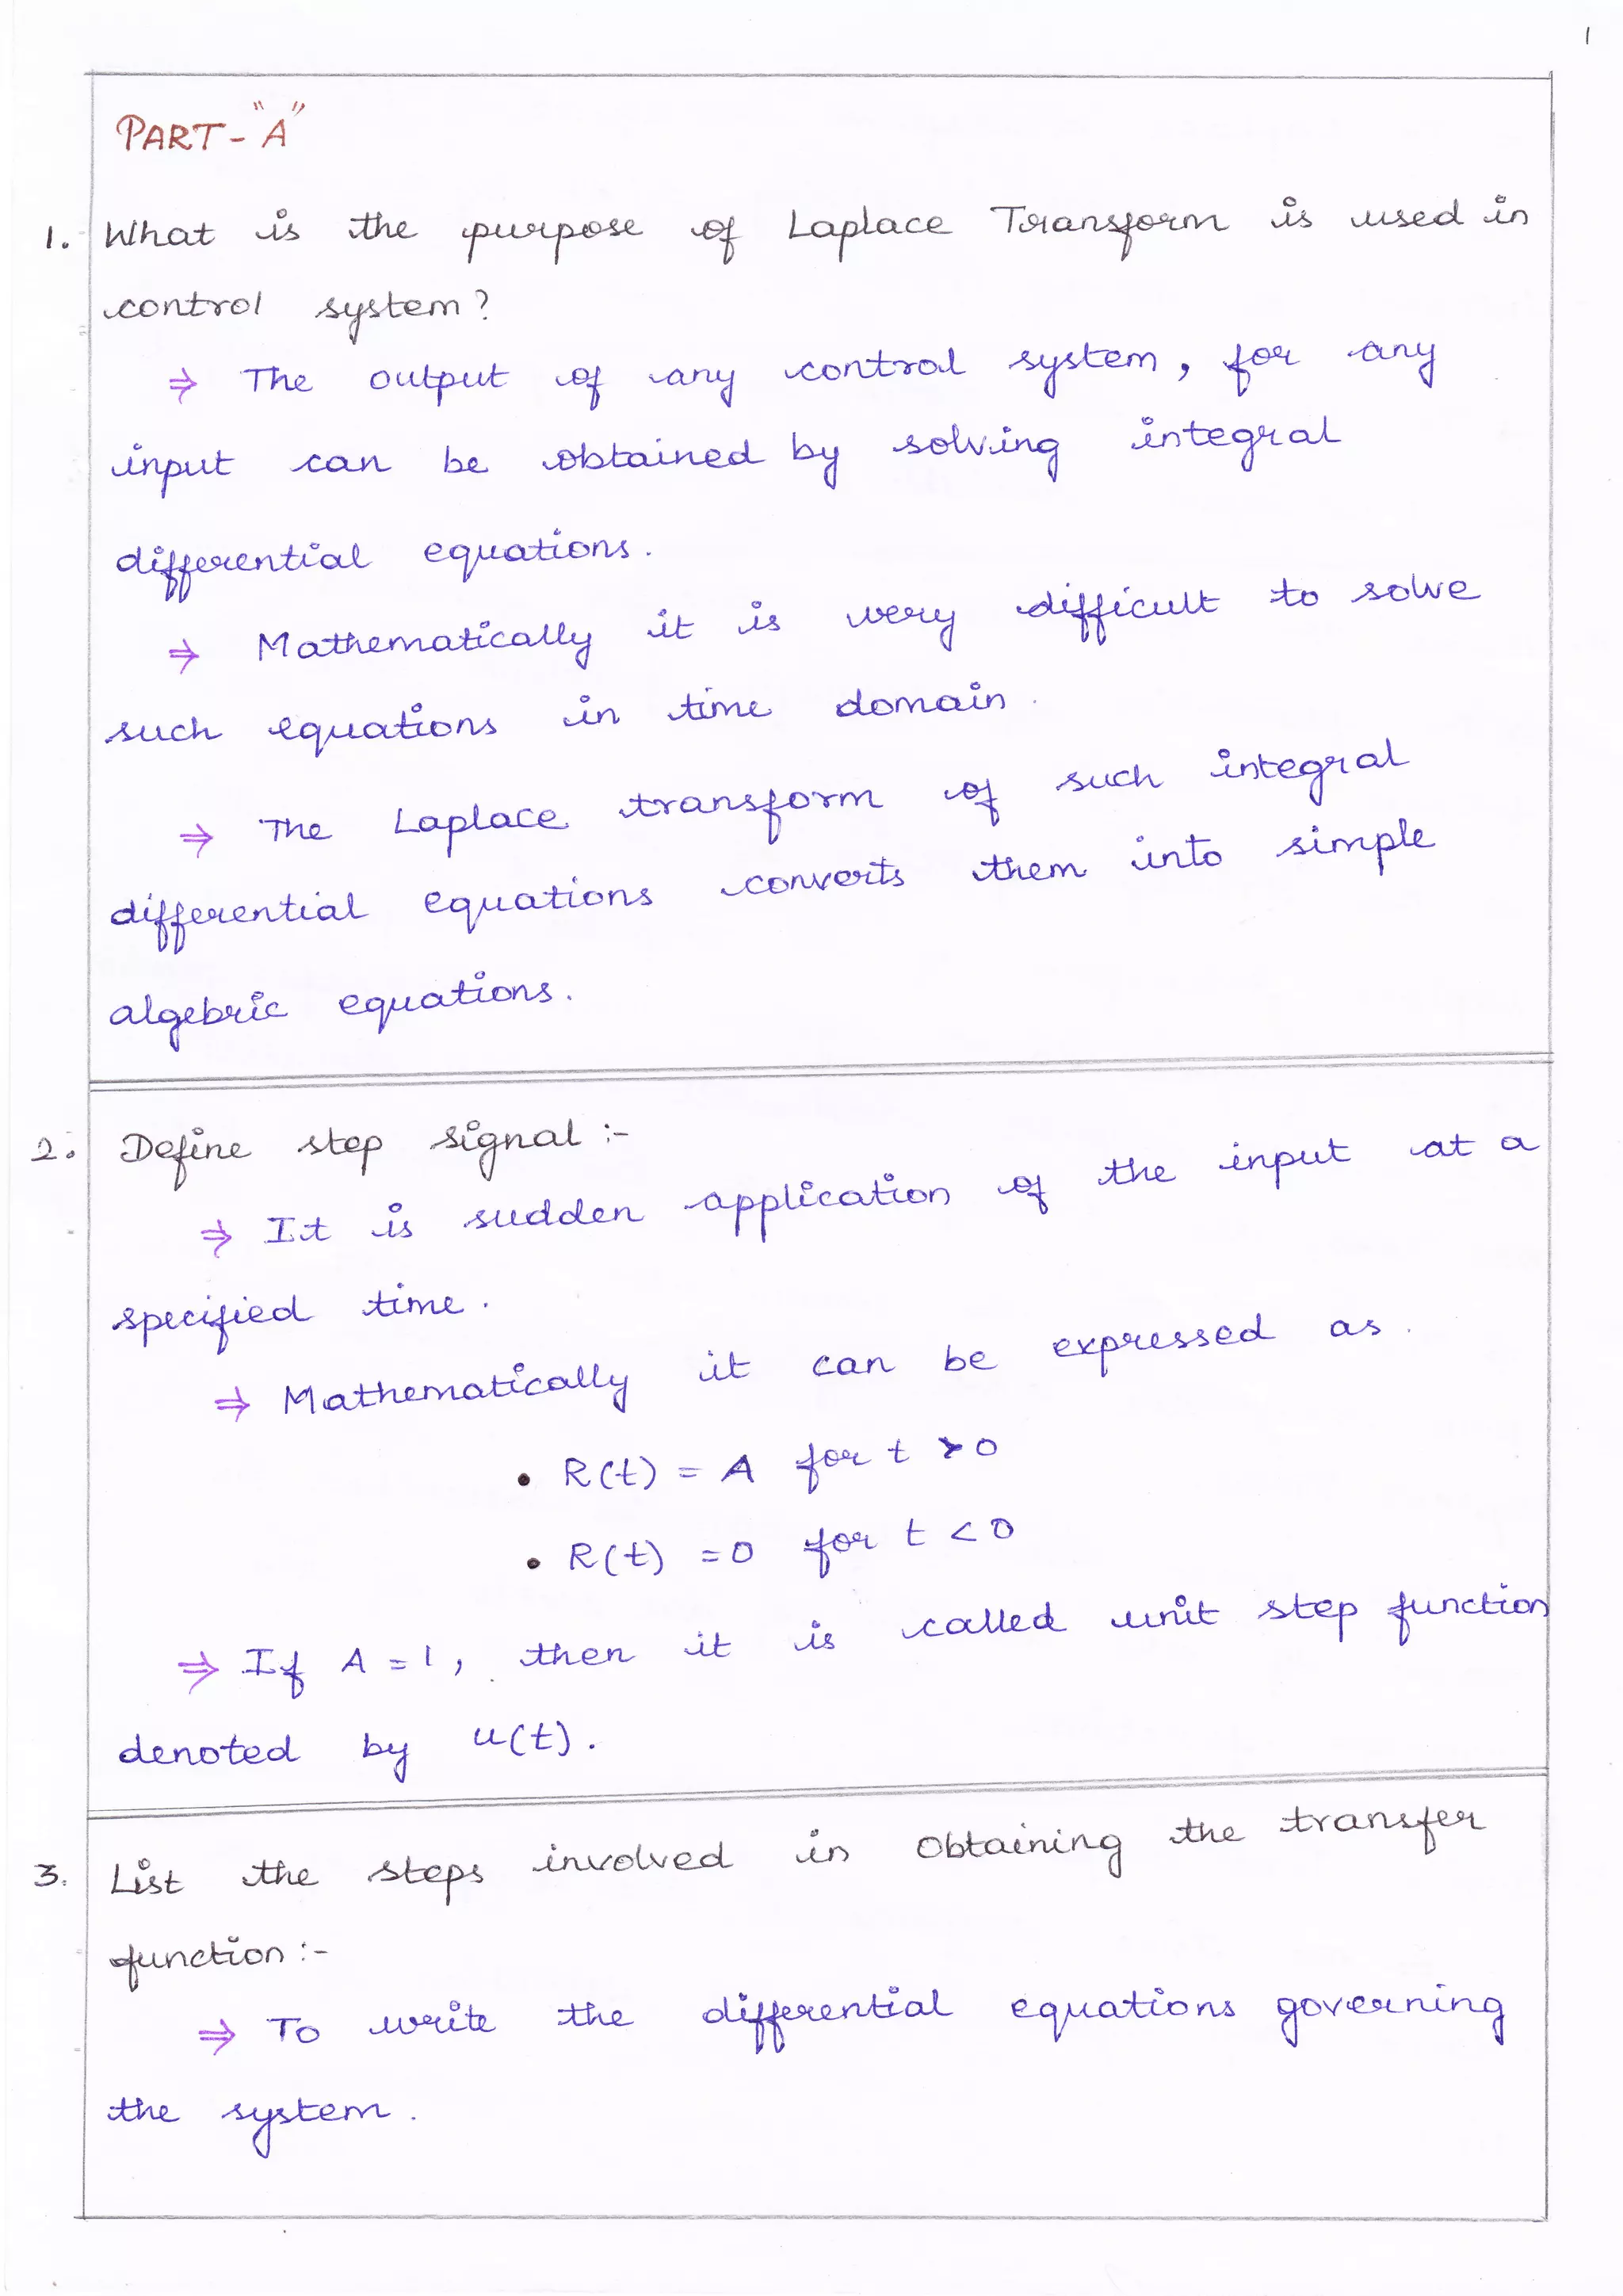 1
PART-"A"
1. What is the purpose of Laplace Transform is used in
control system?
⇒ The output of any control system, for any
input can be obtained by solving integral
differential equations.
⇒ Mathematically it is very difficult to solve
such equations in time domain.
⇒ The Laplace transform of such integral
differential equations converts them into simple
algebric equations.
2. Define step signal :-
⇒ It is sudden application of the input at a
specified time.
⇒ Mathematically it can be expressed as.
• R(t) = A for t > 0
• R(t) = 0 for t < 0
⇒ If A = 1, then it is called unit step function
denoted by u(t).
3. List the steps involved in Obtaining the transfer
function :-
⇒ To write the differential equations governing
the system.